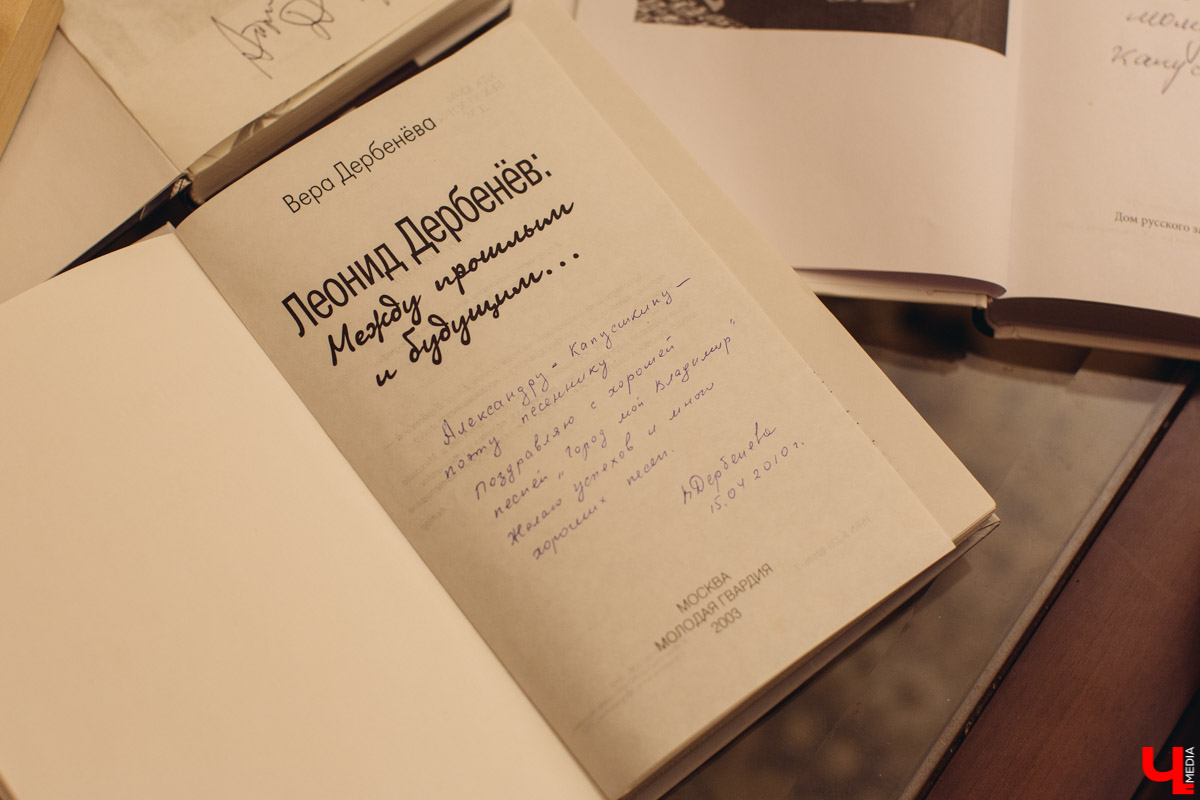 Вера Дербенёва
Леонид Дербенёв:
Между прошлым
и будущим...
Александру Капусткину —
поэту песеннику.
Поздравляю с хорошей
песней „Город мой Владимир"
Желаю успехов и много
хороших песен.
В Дербенева
15.04 2010 г.
МОСКВА
МОЛОДАЯ ГВАРДИЯ
2003
Дом русского
Ч MEDIA